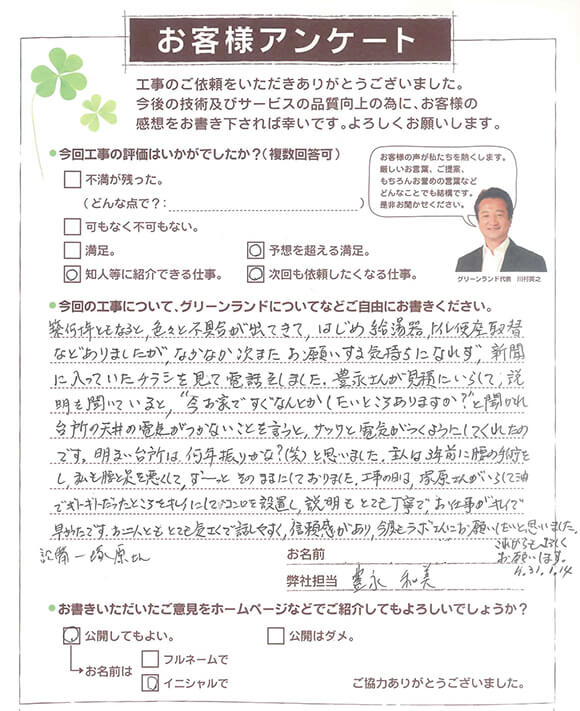 お客様アンケート
工事のご依頼をいただきありがとうございました。
今後の技術及びサービスの品質向上の為に、お客様の
感想をお書き下されば幸いです。よろしくお願いします。
●今回工事の評価はいかがでしたか?(複数回答可)
不満が残った。
(どんな点で?: )
可もなく不可もない。
満足。
予想を超える満足。
知人等に紹介できる仕事。
次回も依頼したくなる仕事。
お客様の声が私たちを熱くします。
厳しいお言葉、ご提案、
もちろんお誉めの言葉など
どんなことでも結構です。
是非お聞かせください。
グリーンランド代表 川村英之
●今回の工事について、グリーンランドについてなどご自由にお書きください。
築何十年ともなると、色々と不具合が出てきて、はじめ給湯器、トイレ便座取替
などありましたが、なかなか次また お願いする気持ちになれず、新聞
に入っていたチラシを見て電話をしました。豊永さんが見積にいらして、説
明を聞いていると、"今お家ですぐなんとかしたいところありますか?"と聞かれ
台所の天井の電気がつかないことを言うと、サッと電気がつくようにしてくれたの
です。明るい台所は、何年振りかな?(笑)と思いました。主人は3年前に腰の手術を
し、私も腰と足を悪くして、ず〜っと そのままにしておりました。工事の日は、塚原さんがいらして油
でギトギトだったところをキレイにしてコンロを設置し、説明も とても丁寧で、お仕事がキレイで
早かったです。お二人とも とても気さくで話しやすく、信頼感があり、今度もラボさんにお願いしたいと思いました。
これからもよろしく
お願いします。
H.31.1.14
記備ー塚原さん
お名前
弊社担当 豊永 和美
●お書きいただいたご意見をホームページなどでご紹介してもよろしいでしょうか?
公開してもよい。
公開はダメ。
お名前は
フルネームで
イニシャルで
ご協力ありがとうございました。